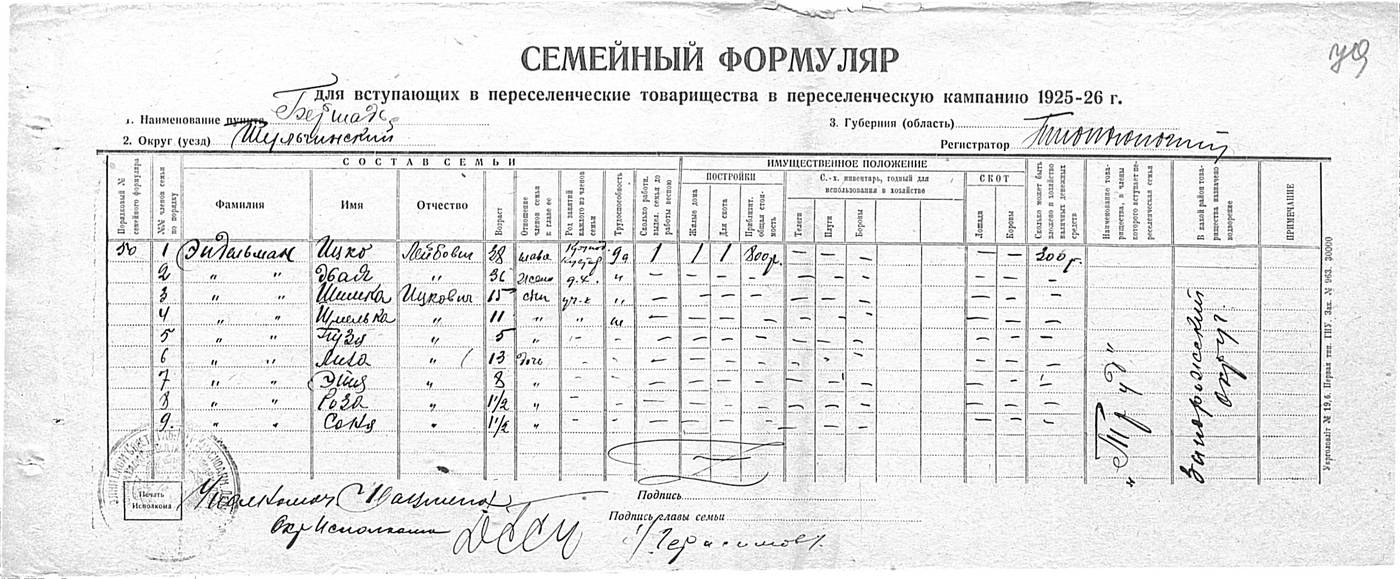 СЕМЕЙНЫЙ ФОРМУЛЯР
для вступающих в переселенческие товарищества в переселенческую кампанию 1925-26 г.
1. Наименование пункта Бершадь
3. Губерния (область)
2. Округ (уезд) Тульчинский
Регистратор
СОСТАВ СЕМЬИ
ИМУЩЕСТВЕННОЕ ПОЛОЖЕНИЕ
Порядковый № семейного формуляра
№№ членов семьи по порядку
Фамилия
Имя
Отчество
Возраст
Отношение членов семьи к главе ее
Род занятий каждого из членов семьи
Трудоспособность
Сколько работн. выдел. семья до работы весною
ПОСТРОЙКИ
Жилые дома
Для скота
Приблизит. общая стоимость
С.-х. инвентарь, годный для использования в хозяйстве
Телеги
Плуги
Бороны
СКОТ
Лошади
Коровы
Сколько может быть вложено в хозяйство наличных денежных средств
Наименование товарищества, в члены которого вступает переселенческая семья
В какой район товарищества назначено водворение
ПРИМЕЧАНИЕ
50 1 Эйдельман Ицко Лейбович 28 глава да 1 1 1 800 р. — — — — — 200 р.
2 " " " 36 жена д.х. " — — — — — — — — — —
3 " " Шишка Ицкович 15 сын уч-к " — — — — — — — — — —
4 " " Шмелька " 11 " " — — — — — — — — — —
5 " " " 5 " — — — — — — — — — — — —
6 " " Лиза " 13 дочь — — — — — — — — — — — —
7 " " Этя " 8 " — — — — — — — — — — — —
8 " " Роза " 1 1/2 " — — — — — — — — — — — —
9. " " Соня " 1 1/2 " — — — — — — — — — — — —
„Труд"
Запорожский Округ.
Печать Исполкома
Окр Исполкома
Подпись
Подпись главы семьи
Герасимов
Укрголовліт № 19,6. Первая тип. ГПУ. Зак. № 963. 30000